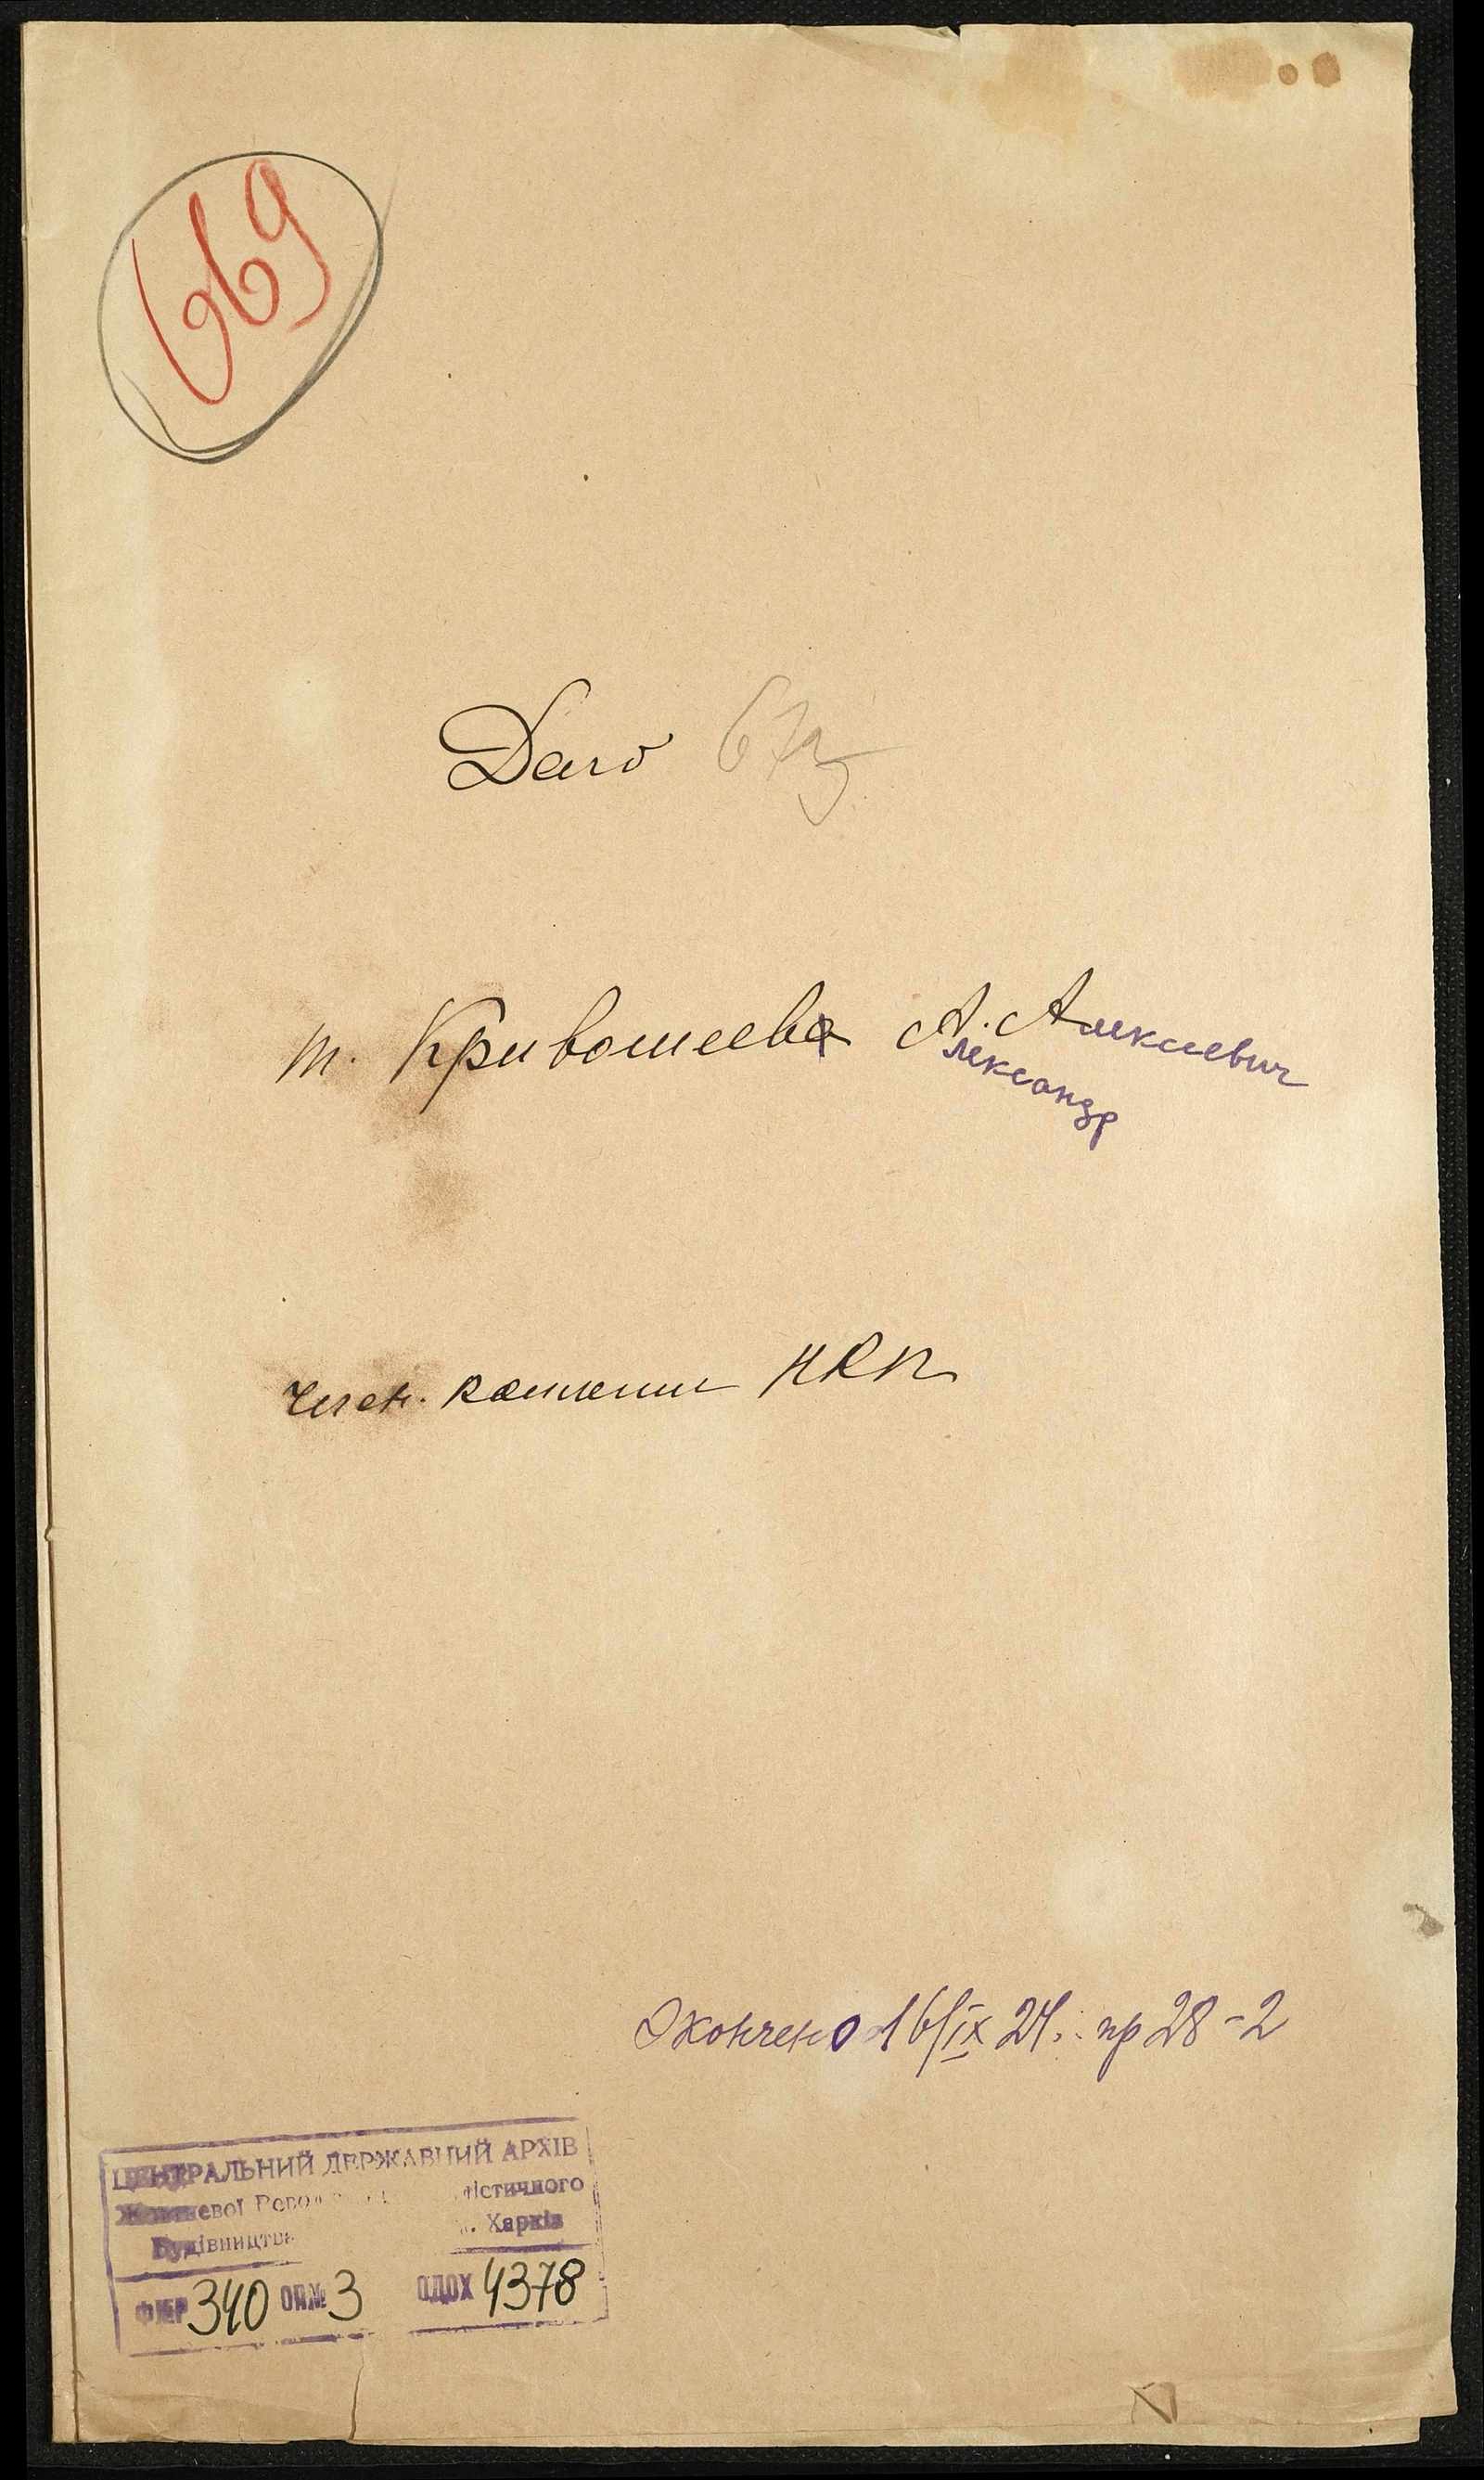 669
Дело
т. Кривошеева А. Алексеевич
лександр
Член. комячейки НКП
Окончено 16/IX 24. пр 28-2
ЦЕНТРАЛЬНИЙ ДЕРЖАВНИЙ АРХІВ
Жовтневої
Будівництва м. Харків
Ф№Р 340 ОП№ 3 ОДОХ 4378